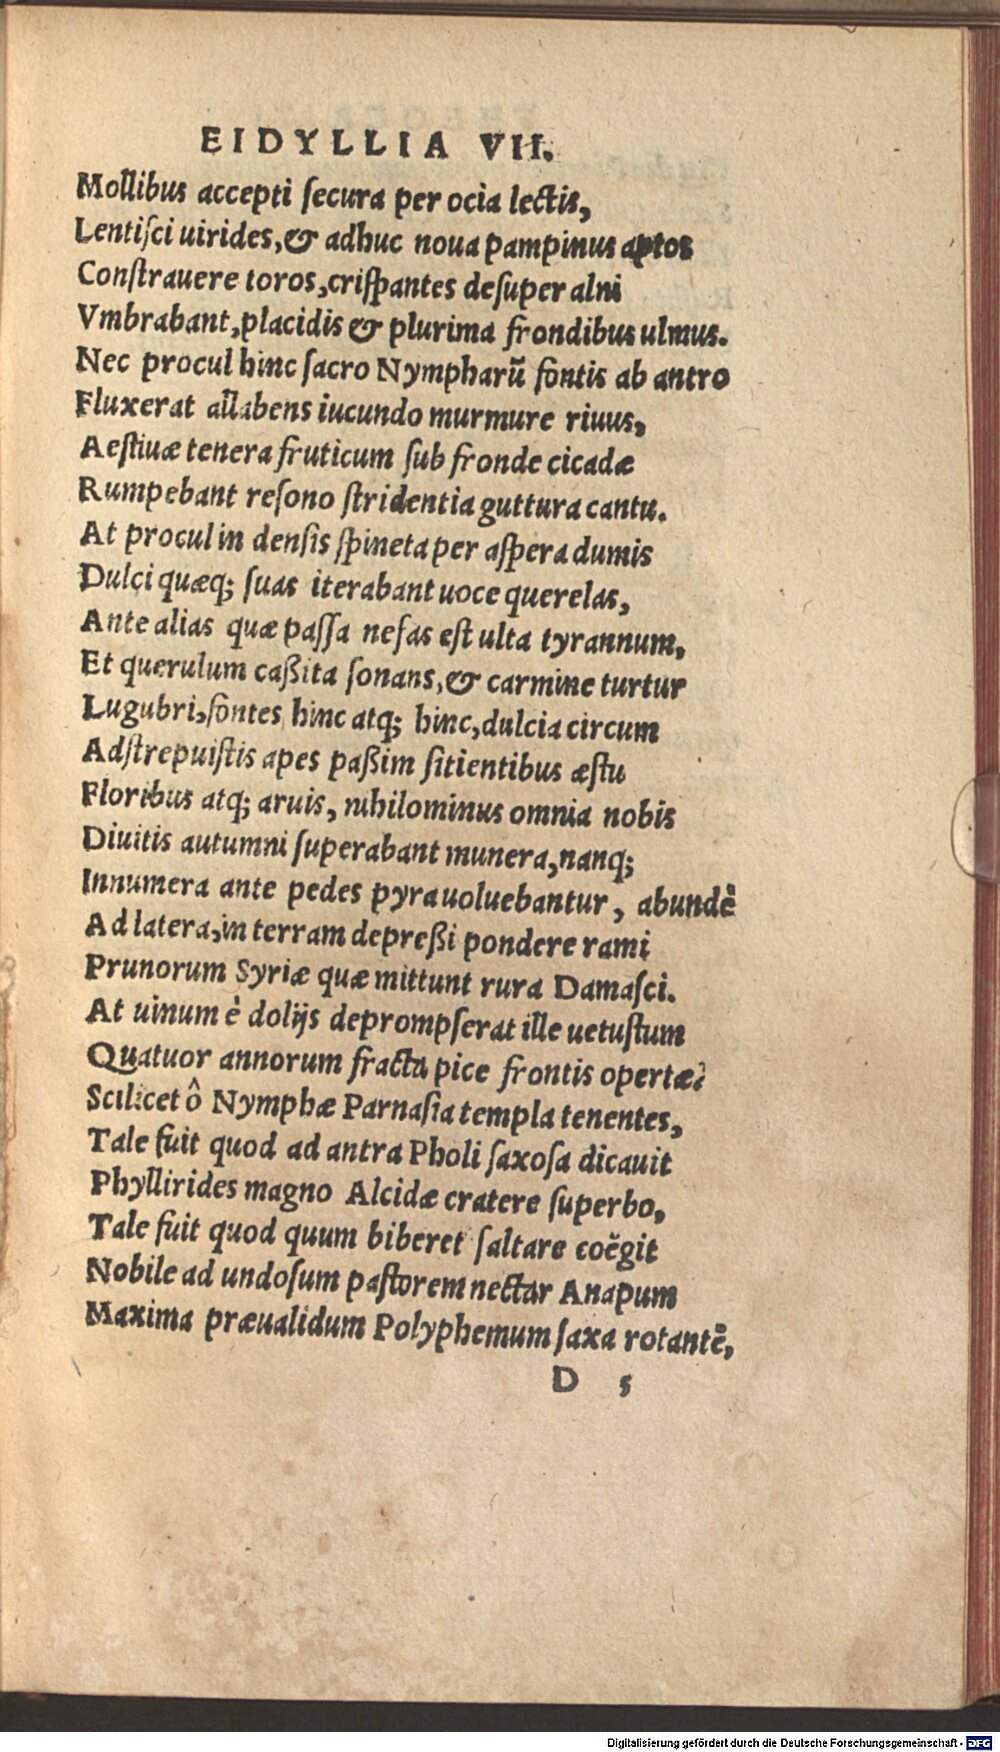 EIDYLLIA VII.
Mollibus accepti ſecura per ocia lectis,
Lentiſci uirides, & adhuc noua pampinus aptos
Conſtrauere toros, criſpantes deſuper alni
Vmbrabant, placidis & plurima frondibus ulmus.
Nec procul hinc ſacro Nympharū fontis ab antro
Fluxerat allabens iucundo murmure riuus,
Aeſtiuæ tenera fruticum ſub fronde cicadæ
Rumpebant reſono ſtridentia guttura cantu.
At procul in denſis ſpineta per aſpera dumis
Dulci quæq; ſuas iterabant uoce querelas,
Ante alias quæ paſſa nefas eſt ulta tyrannum,
Et querulum caßita ſonans, & carmine turtur
Lugubri, fontes hinc atq; hinc, dulcia circum
Adſtrepuiſtis apes paßim ſitientibus æſtu
Floribus atq; aruis, nihilominus omnia nobis
Diuitis autumni ſuperabant munera, nanq;
Innumera ante pedes pyra uoluebantur, abundè
Ad latera, in terram depreßi pondere rami
Prunorum Syriæ quæ mittunt rura Damaſci.
At uinum è dolijs deprompſerat ille uetuſtum
Quatuor annorum fracta pice frontis opertæ?
Scilicet ô Nymphæ Parnaſia templa tenentes,
Tale fuit quod ad antra Pholi ſaxoſa dicauit
Phyllirides magno Alcidæ cratere ſuperbo,
Tale fuit quod quum biberet ſaltare coëgit
Nobile ad undoſum paſtorem nectar Anapum
Maxima præualidum Polyphemum ſaxa rotantē,
D 5
Digitalisierung gefördert durch die Deutsche Forschungsgemeinschaft - DFG